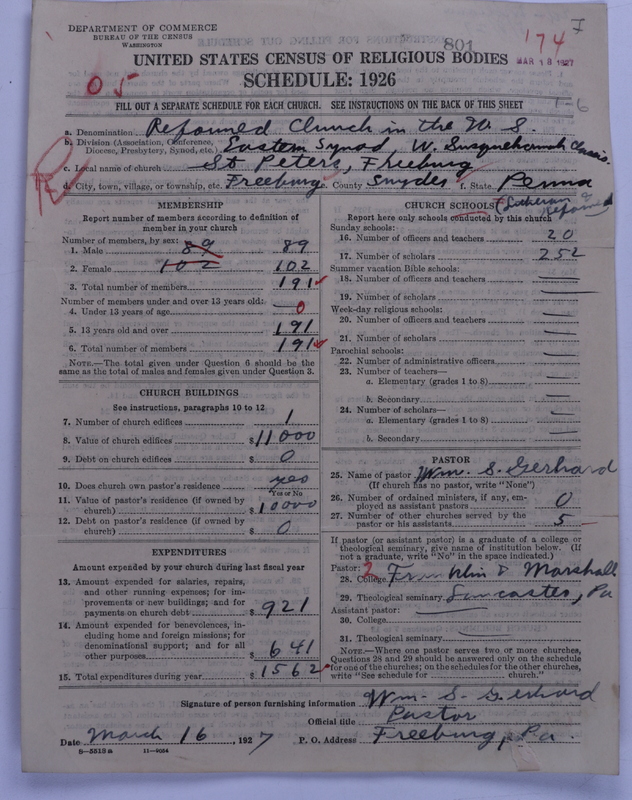 DEPARTMENT OF COMMERCE
BUREAU OF THE CENSUS
WASHINGTON
801
174
7
MAR 18 1927
UNITED STATES CENSUS OF RELIGIOUS BODIES
SCHEDULE: 1926
05
FILL OUT A SEPARATE SCHEDULE FOR EACH CHURCH. SEE INSTRUCTIONS ON THE BACK OF THIS SHEET
1-6
a. Denomination Reformed Church in the U. S.
b. Division (Association, Conference, Diocese, Presbytery, Synod, etc.) Eastern Synod, W. Susquehannah Classis.
c. Local name of church St Peters, Freeburg
d. City, town, village, or township, etc. Freeburg e. County Snyder f. State Penna
MEMBERSHIP
Report number of members according to definition of
member in your church
Number of members, by sex:
1. Male 89 89
2. Female 102 102
3. Total number of members 191
Number of members under and over 13 years old:
4. Under 13 years of age 0
5. 13 years old and over 191
6. Total number of members 191
NOTE.—The total given under Question 6 should be the
same as the total of males and females given under Question 3.
CHURCH BUILDINGS
See instructions, paragraphs 10 to 12
7. Number of church edifices 1
8. Value of church edifices $ 11000
9. Debt on church edifices $ 0
10. Does church own pastor's residence? yes
Yes or No
11. Value of pastor's residence (if owned by
church) $ 10000
12. Debt on pastor's residence (if owned by
church) $ 0
EXPENDITURES
Amount expended by your church during last fiscal year
13. Amount expended for salaries, repairs,
and other running expenses; for im-
provements or new buildings; and for
payments on church debt $ 921
14. Amount expended for benevolences, in-
cluding home and foreign missions; for
denominational support; and for all
other purposes $ 641
15. Total expenditures during year $ 1562
CHURCH SCHOOLS (Lutheran & Reformed
Report here only schools conducted by this church
Sunday schools:
16. Number of officers and teachers 20
17. Number of scholars 252
Summer vacation Bible schools:
18. Number of officers and teachers
19. Number of scholars
Week-day religious schools:
20. Number of officers and teachers
21. Number of scholars
Parochial schools:
22. Number of administrative officers
23. Number of teachers—
a. Elementary (grades 1 to 8)
b. Secondary
24. Number of scholars—
a. Elementary (grades 1 to 8)
b. Secondary
PASTOR
25. Name of pastor Wm. S. Gerhard
(If church has no pastor, write "None")
26. Number of ordained ministers, if any, em-
ployed as assistant pastors 0
27. Number of other churches served by the
pastor or his assistants 5
If pastor (or assistant pastor) is a graduate of a college or
theological seminary, give name of institution below. (If
not a graduate, write "No" in the space indicated.)
Pastor: 2
28. College Franklin & Marshall
29. Theological seminary Lancaster, Pa
Assistant pastor:
30. College
31. Theological seminary
NOTE.—Where one pastor serves two or more churches,
Questions 28 and 29 should be answered only on the schedule
for one of the churches; on the schedules for the other churches,
write "See schedule for church."
Signature of person furnishing information Wm. S. Gerhard
Official title Pastor
Date March 16, 1927 P. O. Address Freeburg, Pa.
8—5513a 11—9054